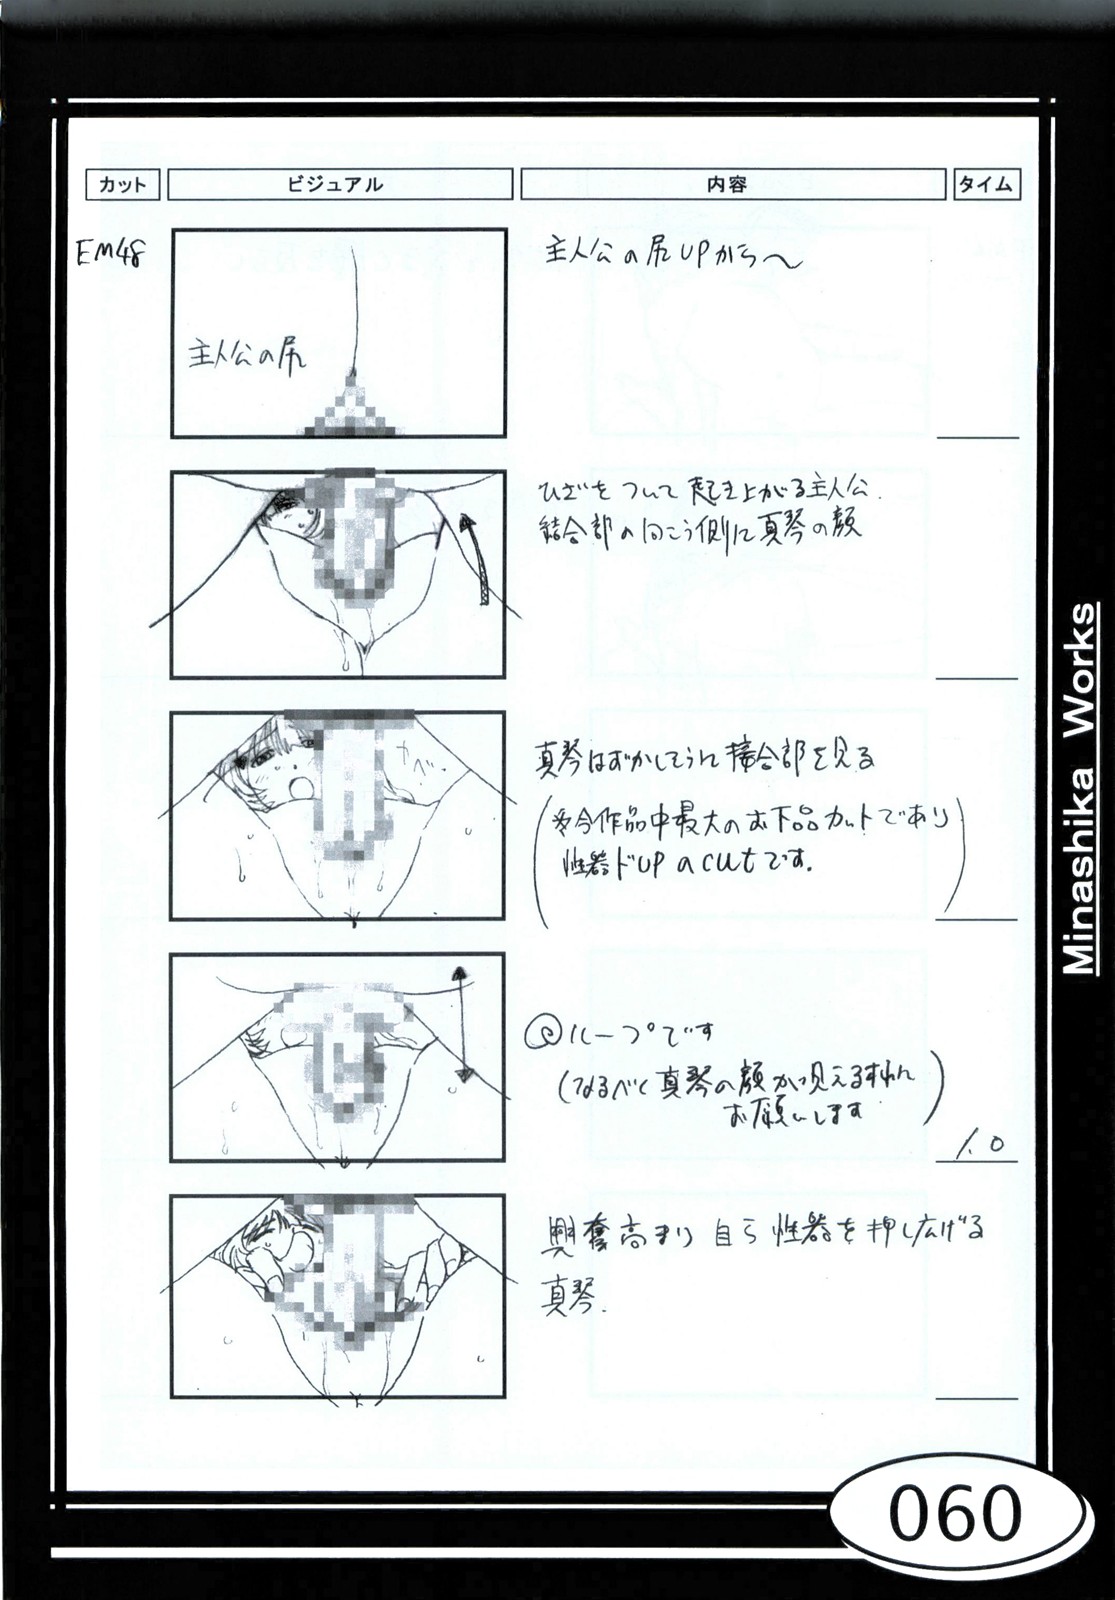 カット ビジュアル 内容 タイム
EM48
主人公の尻UPから〜
主人公の尻
ひざをついて起き上がる主人公.
結合部の向こう側に真琴の顔
真琴はずかしそうに接合部を見る
今作品中最大のお下品カットであり
性器ドUPのcutです.
ループです
(なるべく真琴の顔が見える
お願いします
1.0
興奮高まり 自ら性器を押し広げる
真琴.
Minashika Works
060